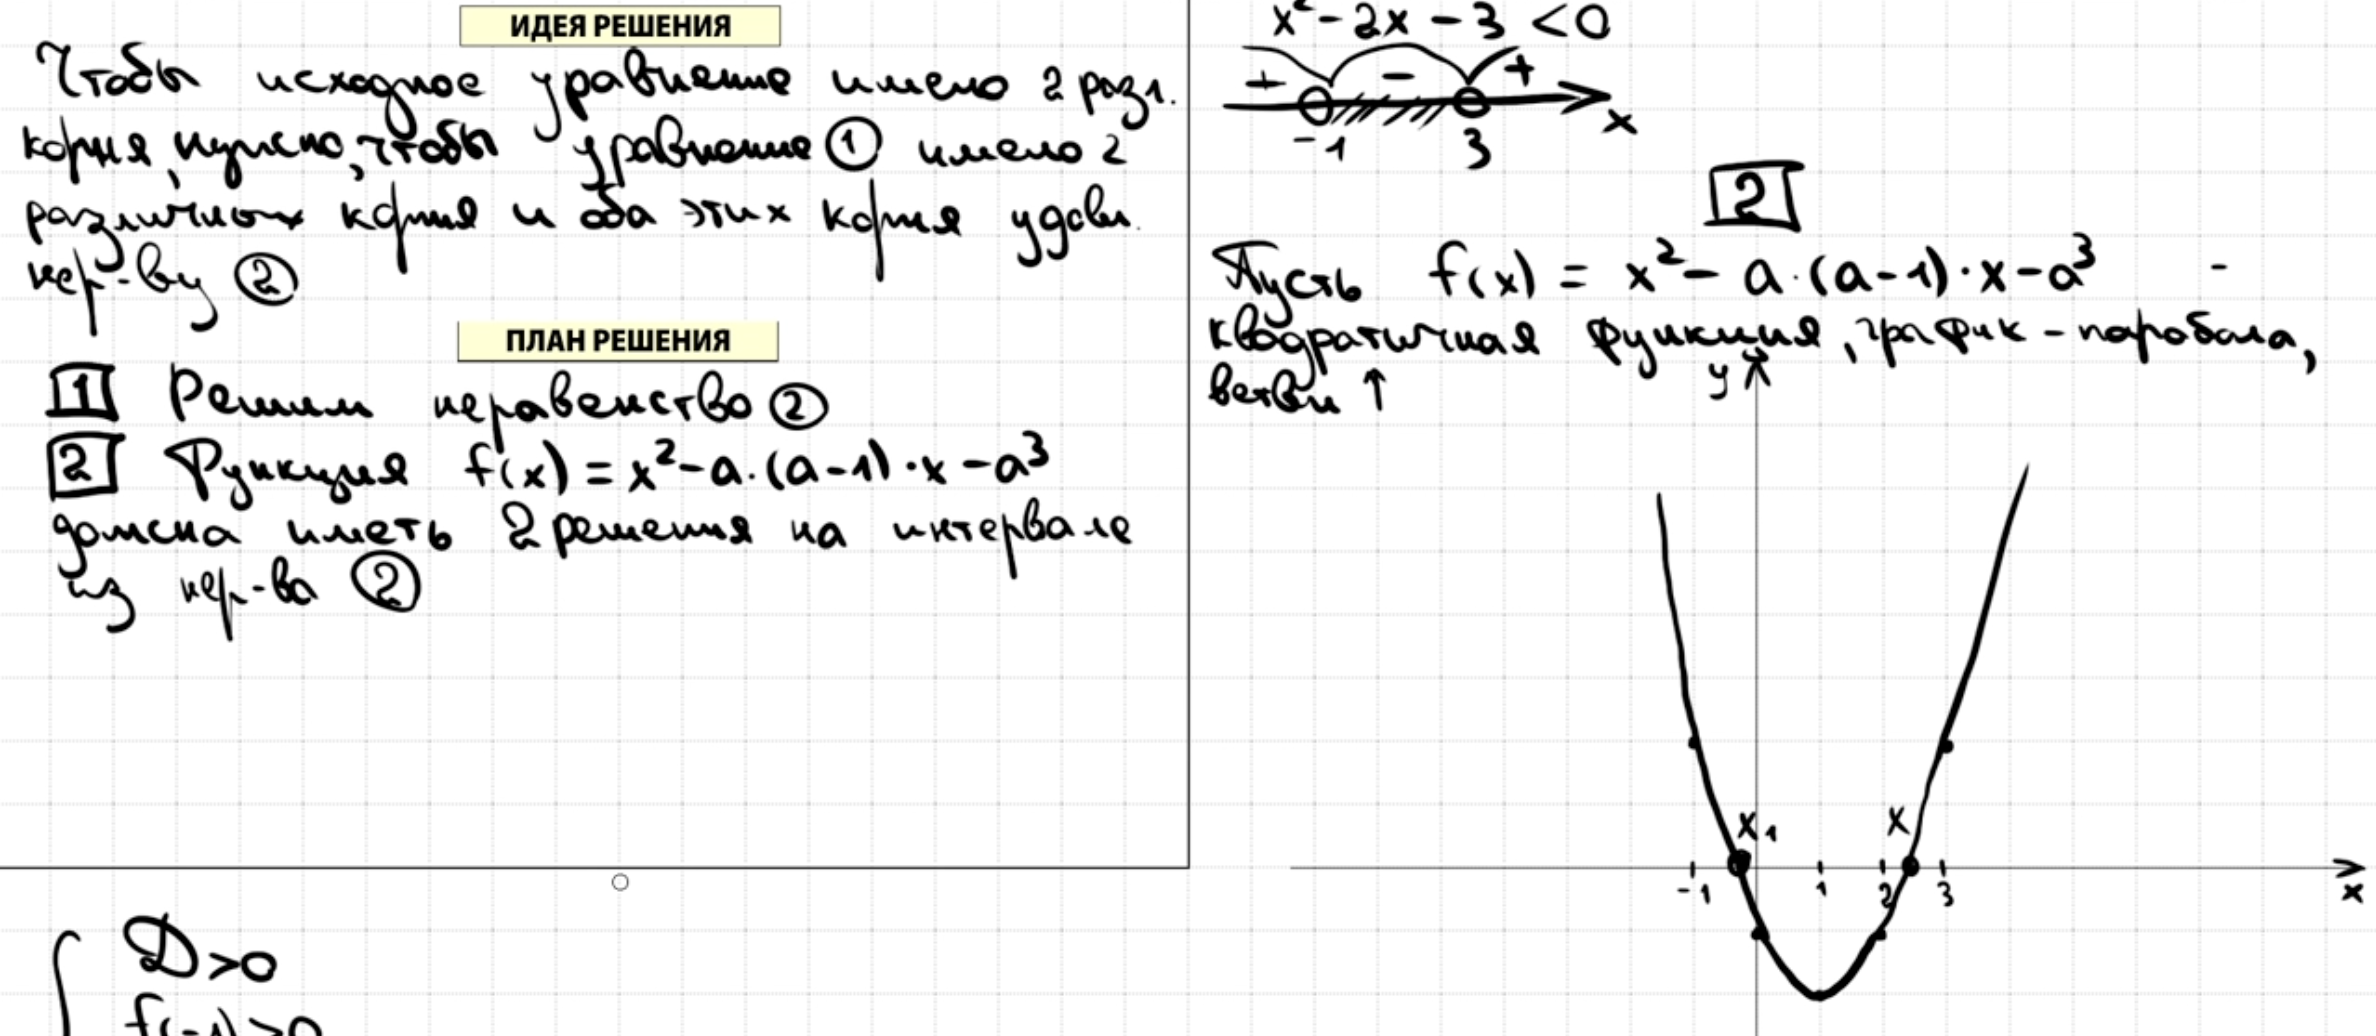 ИДЕЯ РЕШЕНИЯ
Чтобы исходное уравнение имело 2 разл.
корня, нужно, чтобы уравнение ① имело 2
различных корня и оба этих корня удовл.
нер-ву ②
ПЛАН РЕШЕНИЯ
1 Решим неравенство ②
2 Функция f(x) = x² - a·(a-1)·x - a³
должна иметь 2 решения на интервале
из нер-ва ②
D>0
f(-1)>0
x² - 2x - 3 < 0
+ - +
-1 3 x
2
Пусть f(x) = x² - a·(a-1)·x - a³ -
квадратичная функция, график - парабола,
ветви ↑
y
x₁ x
-1 1 2 3 x